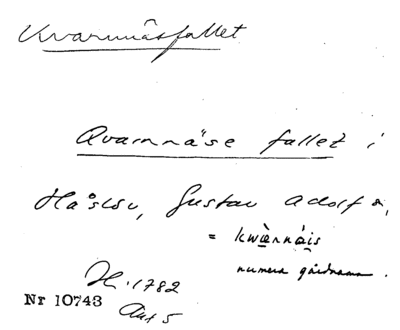 Kvarnnäsfallet
Qvarnnäse fallet i
Håslöv, Gustav Adolf s,
= kwènnäis
numera gårdnamn.
H. 1782
Nr 10743
Aut 5